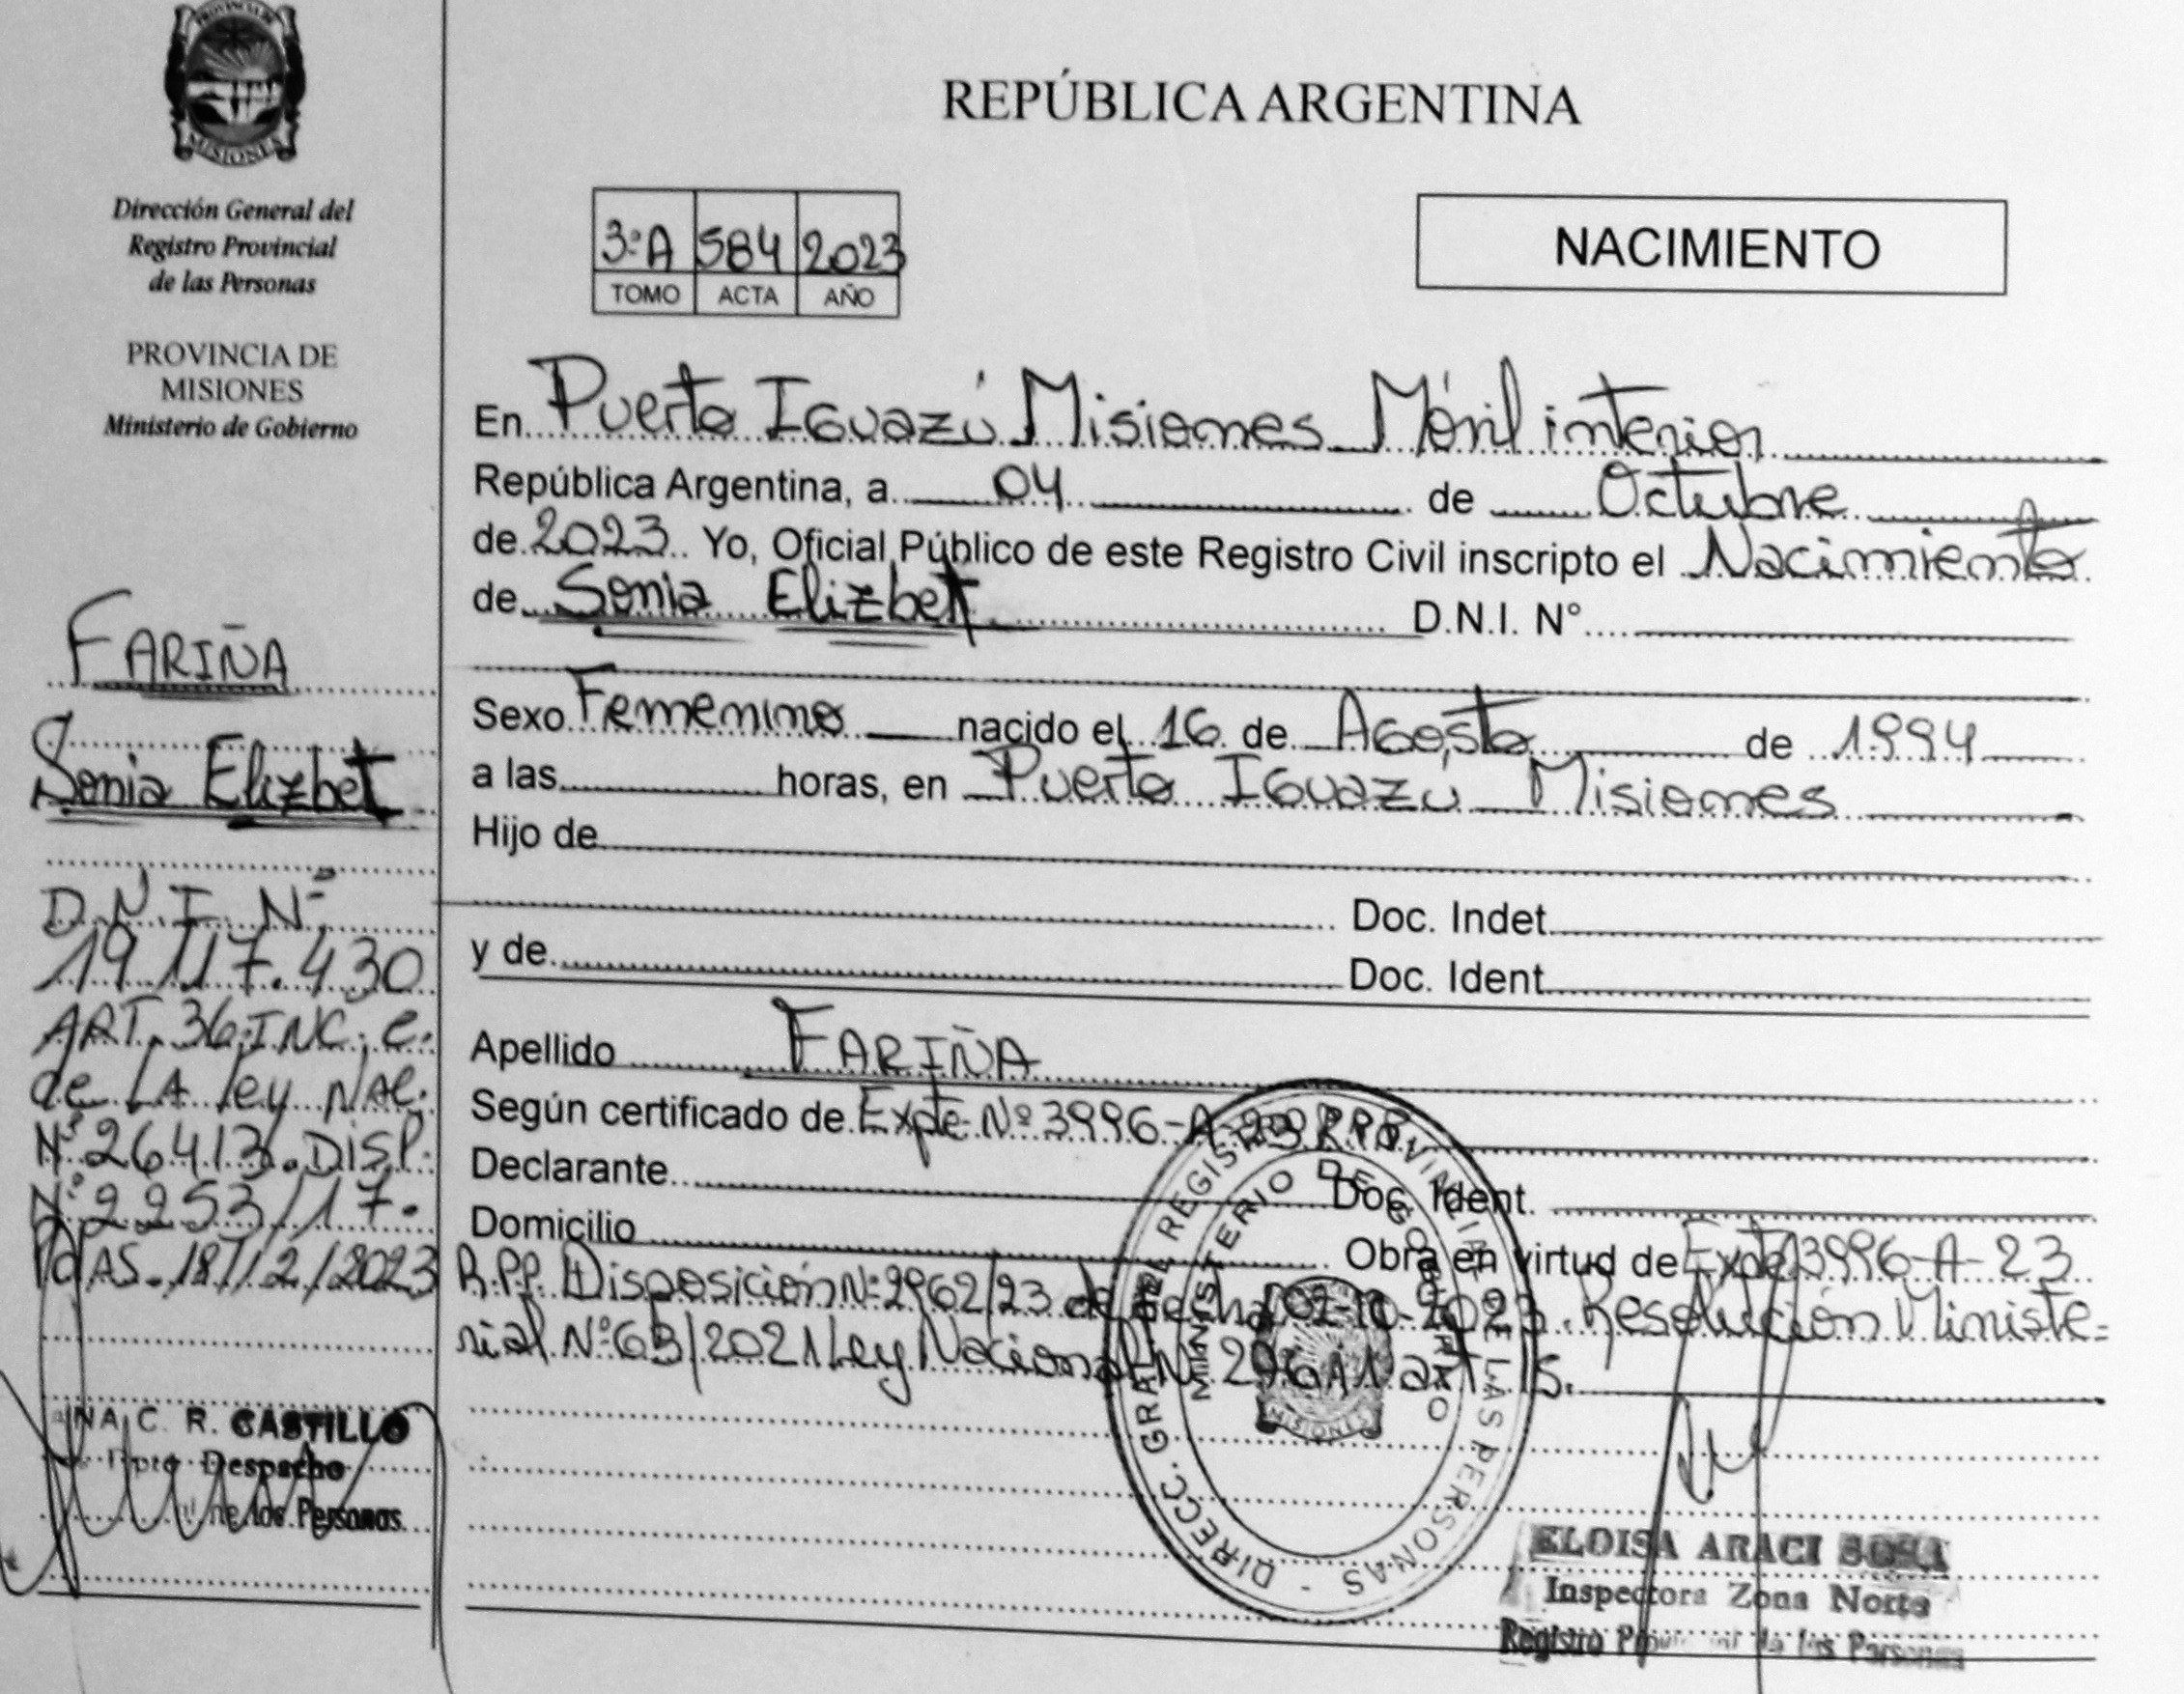 PROVINCIA DE
MISIONES
Dirección General del
Registro Provincial
de las Personas
PROVINCIA DE
MISIONES
Ministerio de Gobierno
FARIÑA
Sonia Elizbet
D.N.I. Nº
19.117.430
ART. 36 INC. C.
de LA ley NAC.
Nº 26413. DISP.
Nº 2253/17.
PdAS. 18/12/2023
C. R. CASTILLO
Dpto Despacho
de los Personas
REPÚBLICA ARGENTINA
3ºA 584 2023
TOMO ACTA AÑO
NACIMIENTO
En Puerto Iguazú Misiones Móvil interior
República Argentina, a 04 de Octubre
de 2023. Yo, Oficial Público de este Registro Civil inscripto el Nacimiento
de Sonia Elizbet D.N.I. N°
Sexo Femenino nacido el 16 de Agosto de 1994
a las horas, en Puerto Iguazú Misiones
Hijo de
Doc. Indet.
y de Doc. Ident.
Apellido FARIÑA
Según certificado de Expte Nº 3996-A-23 R.P.P.
Declarante Doc. Ident.
Domicilio Obra en virtud de Expte 3996-A-23
R.P.P. Disposición Nº 2962/23 de fecha 02-10-2023. Resolución Ministe=
rial Nº 63/2021 Ley Nacional Nº art. 15.
DIRECC. GRAL. DEL REGISTRO PROVINCIAL DE LAS PERSONAS -
MINISTERIO DE GOBIERNO
MISIONES
ELOISA ARACI SOSA
Inspectora Zona Norte
Registro Provincial de las Personas